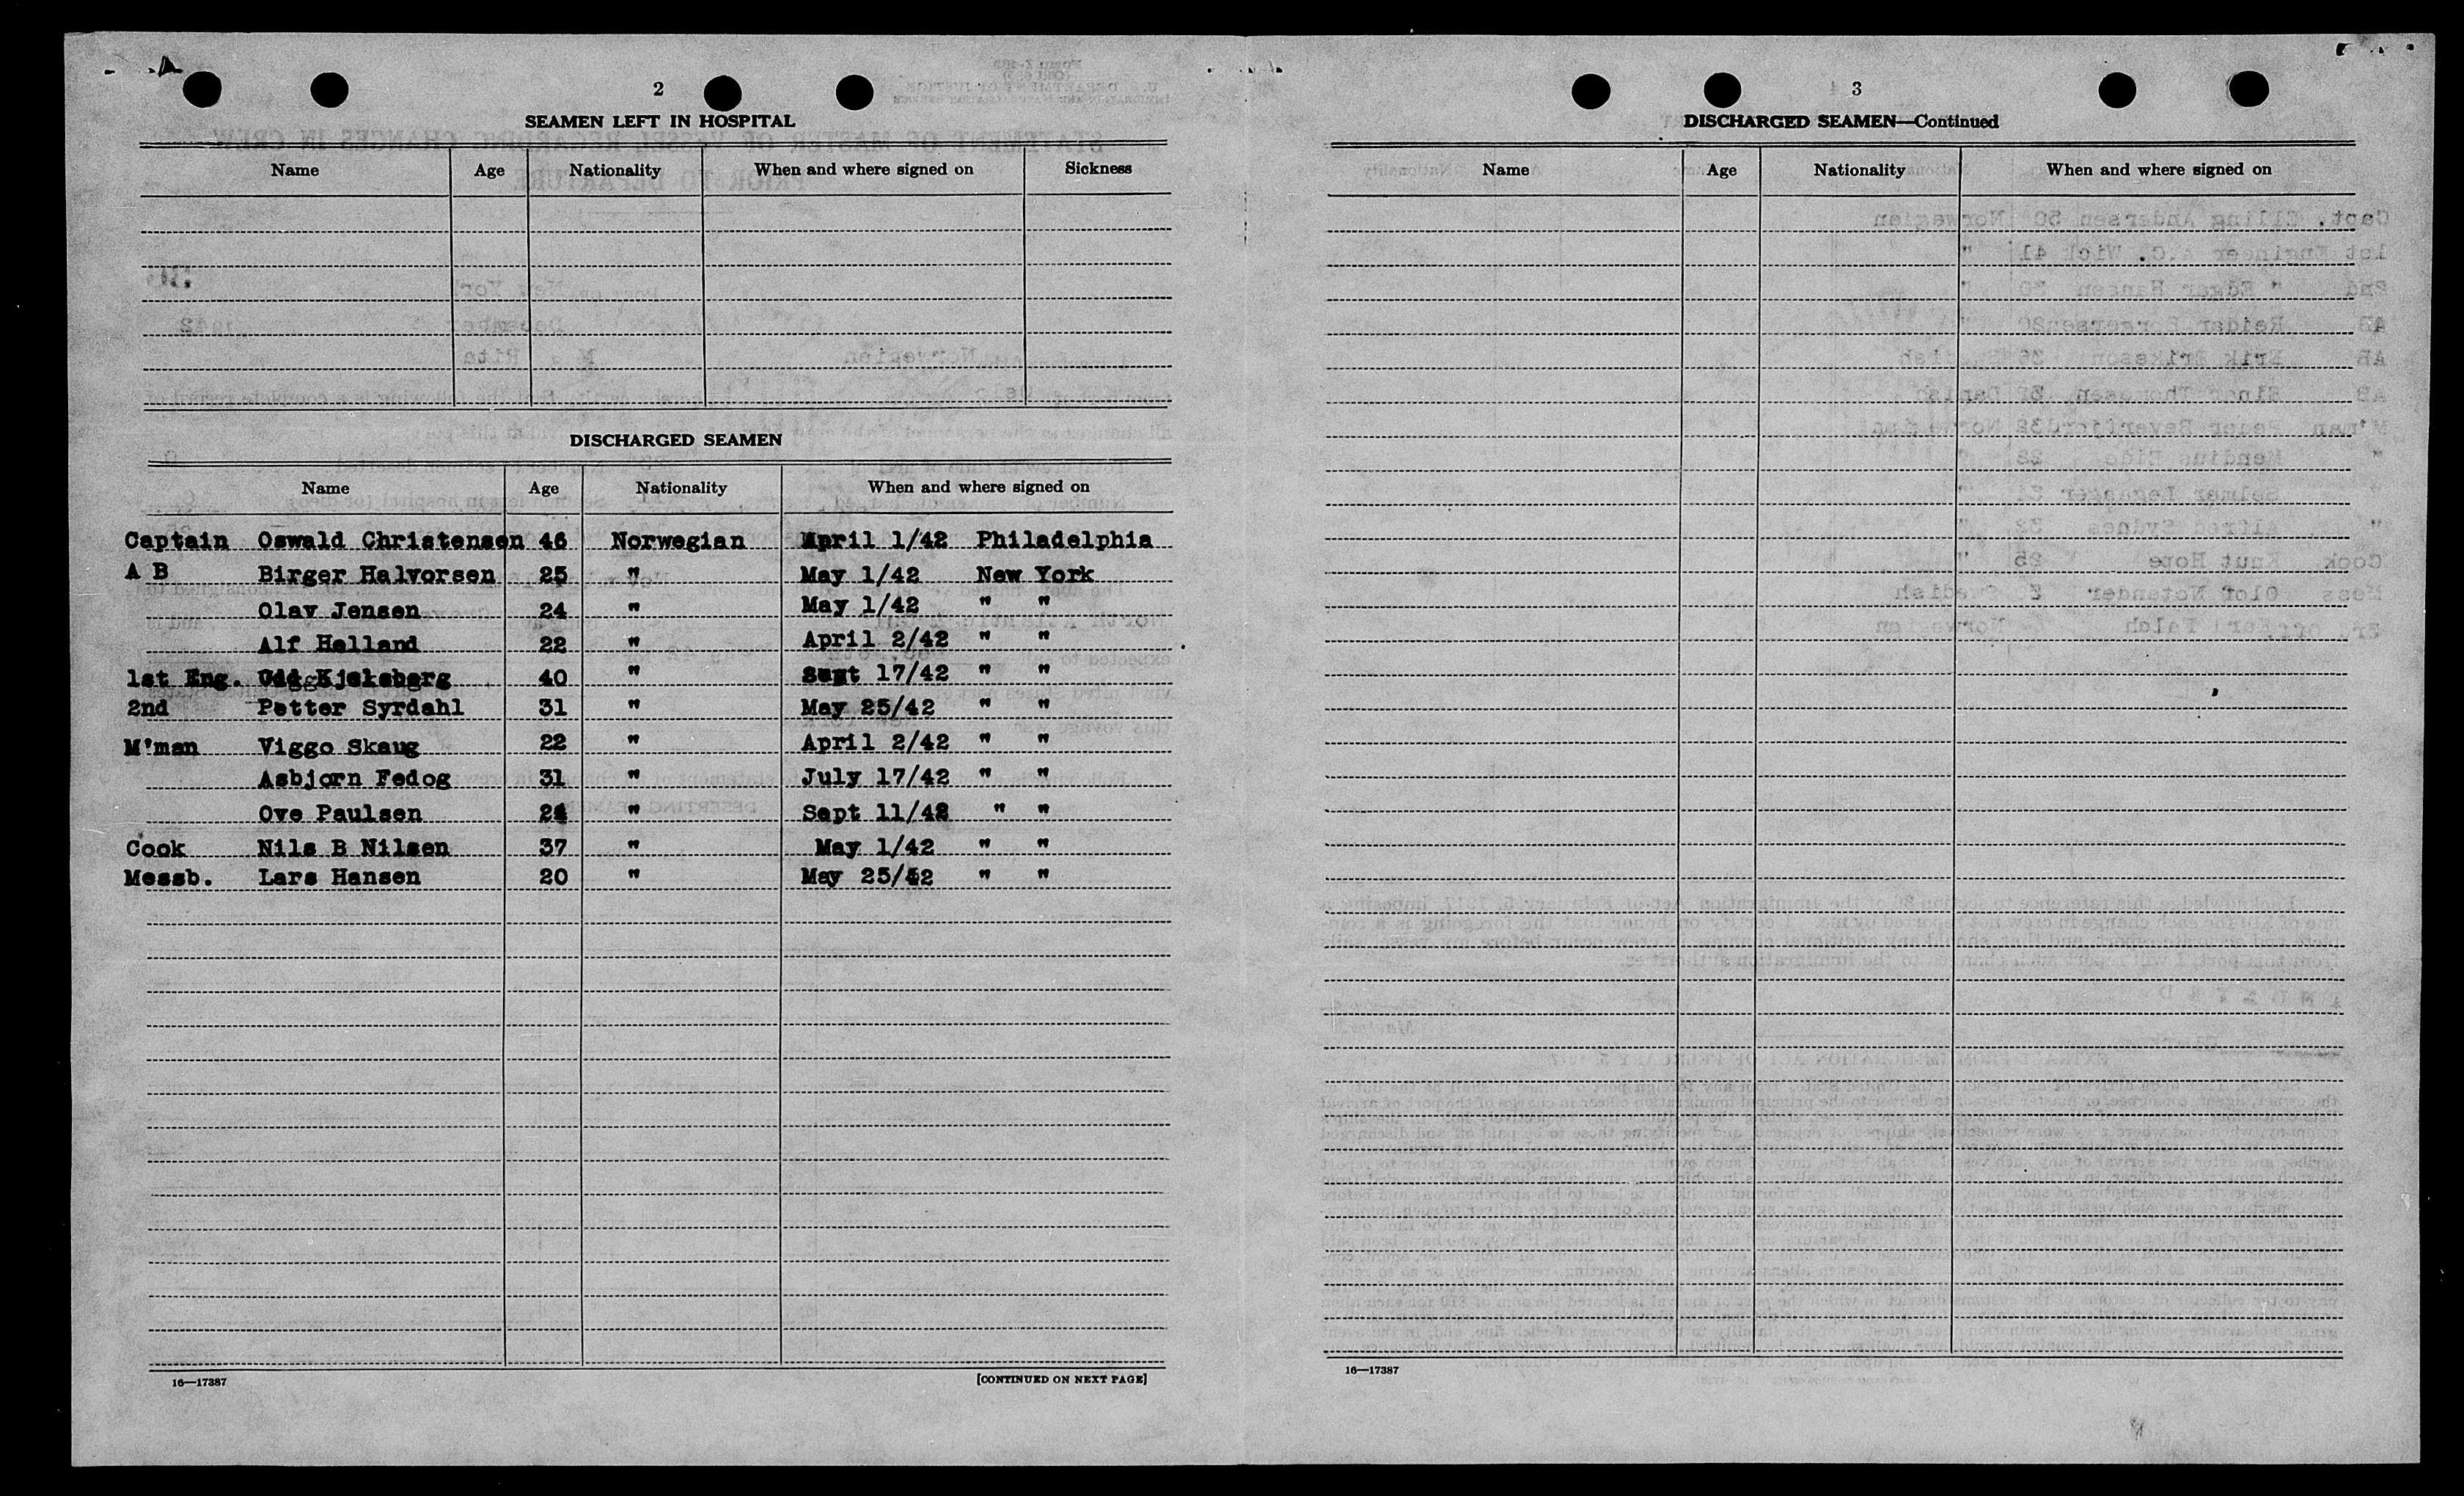 2
SEAMEN LEFT IN HOSPITAL
Name Age Nationality When and where signed on Sickness
DISCHARGED SEAMEN
Name Age Nationality When and where signed on
Captain Oswald Christensen 46 Norwegian April 1/42 Philadelphia
A B Birger Halvorsen 25 " May 1/42 New York
Olav Jensen 24 " May 1/42 " "
Alf Helland 22 " April 2/42 " "
1st Eng. Odd Kjeksberg 40 " Sept 17/42 " "
2nd Petter Syrdahl 31 " May 25/42 " "
M'man Viggo Skaug 22 " April 2/42 " "
Asbjorn Fedog 31 " July 17/42 " "
Ove Paulsen 24 " Sept 11/42 " "
Cook Nils B Nilsen 37 " May 1/42 " "
Messb. Lars Hansen 20 " May 25/42 " "
16—17387 [CONTINUED ON NEXT PAGE]
3
DISCHARGED SEAMEN—Continued
Name Age Nationality When and where signed on
16—17387